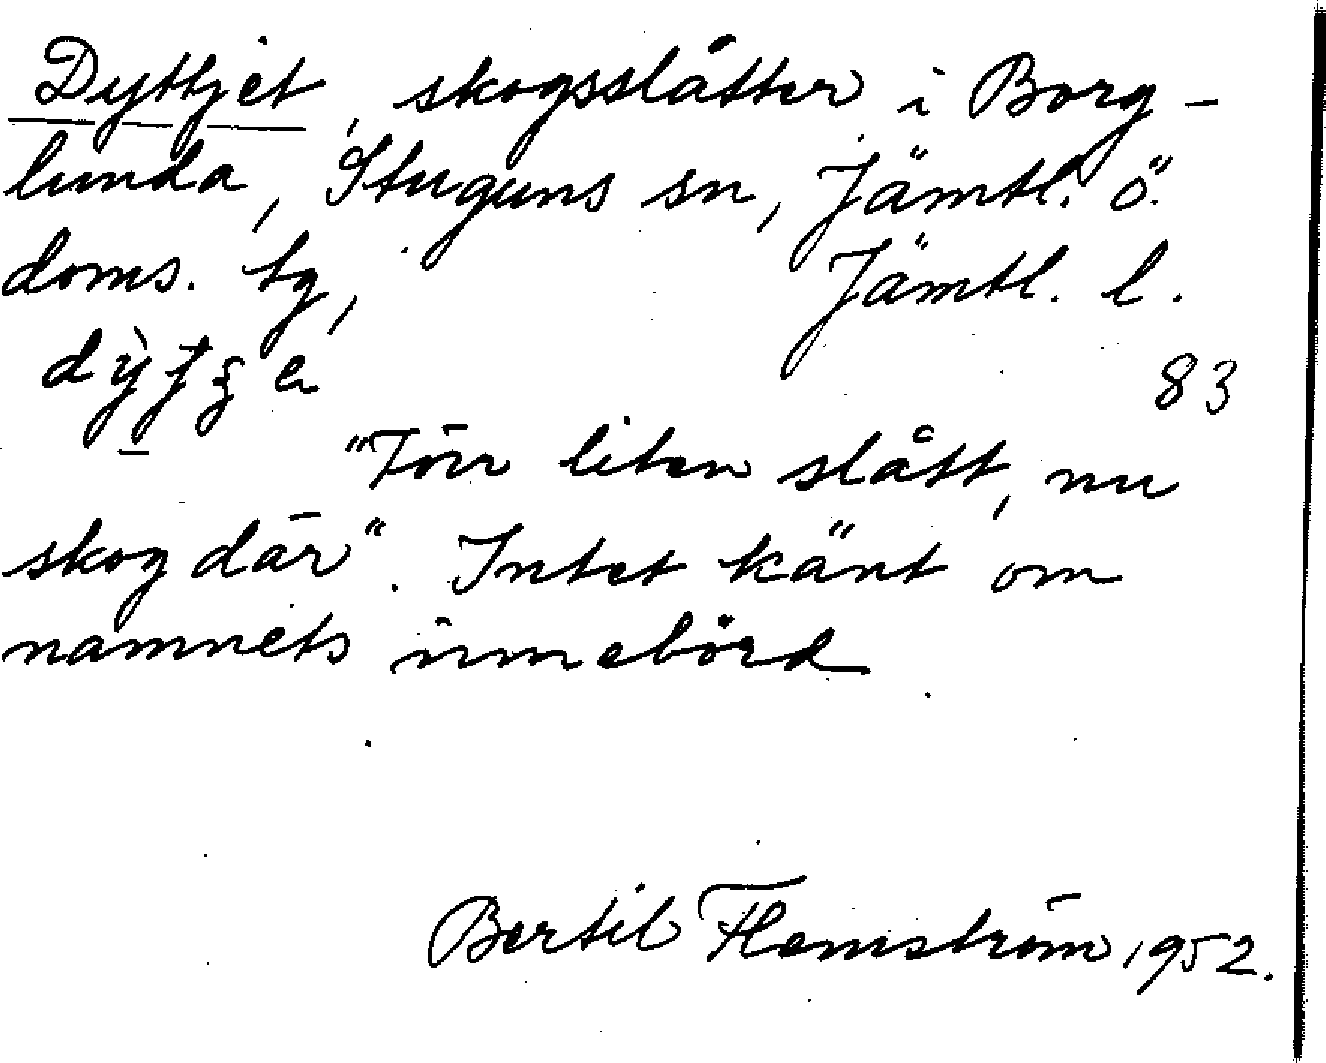 Dyttjet, skogsslåtter i Borg-
lunda, Stuguns sn, Jämtl. ö.
doms. tg, Jämtl. l.
83
"Förr liten slått, nu
skog där". Intet känt om
namnets innebörd
Bertil Flemström 1952.